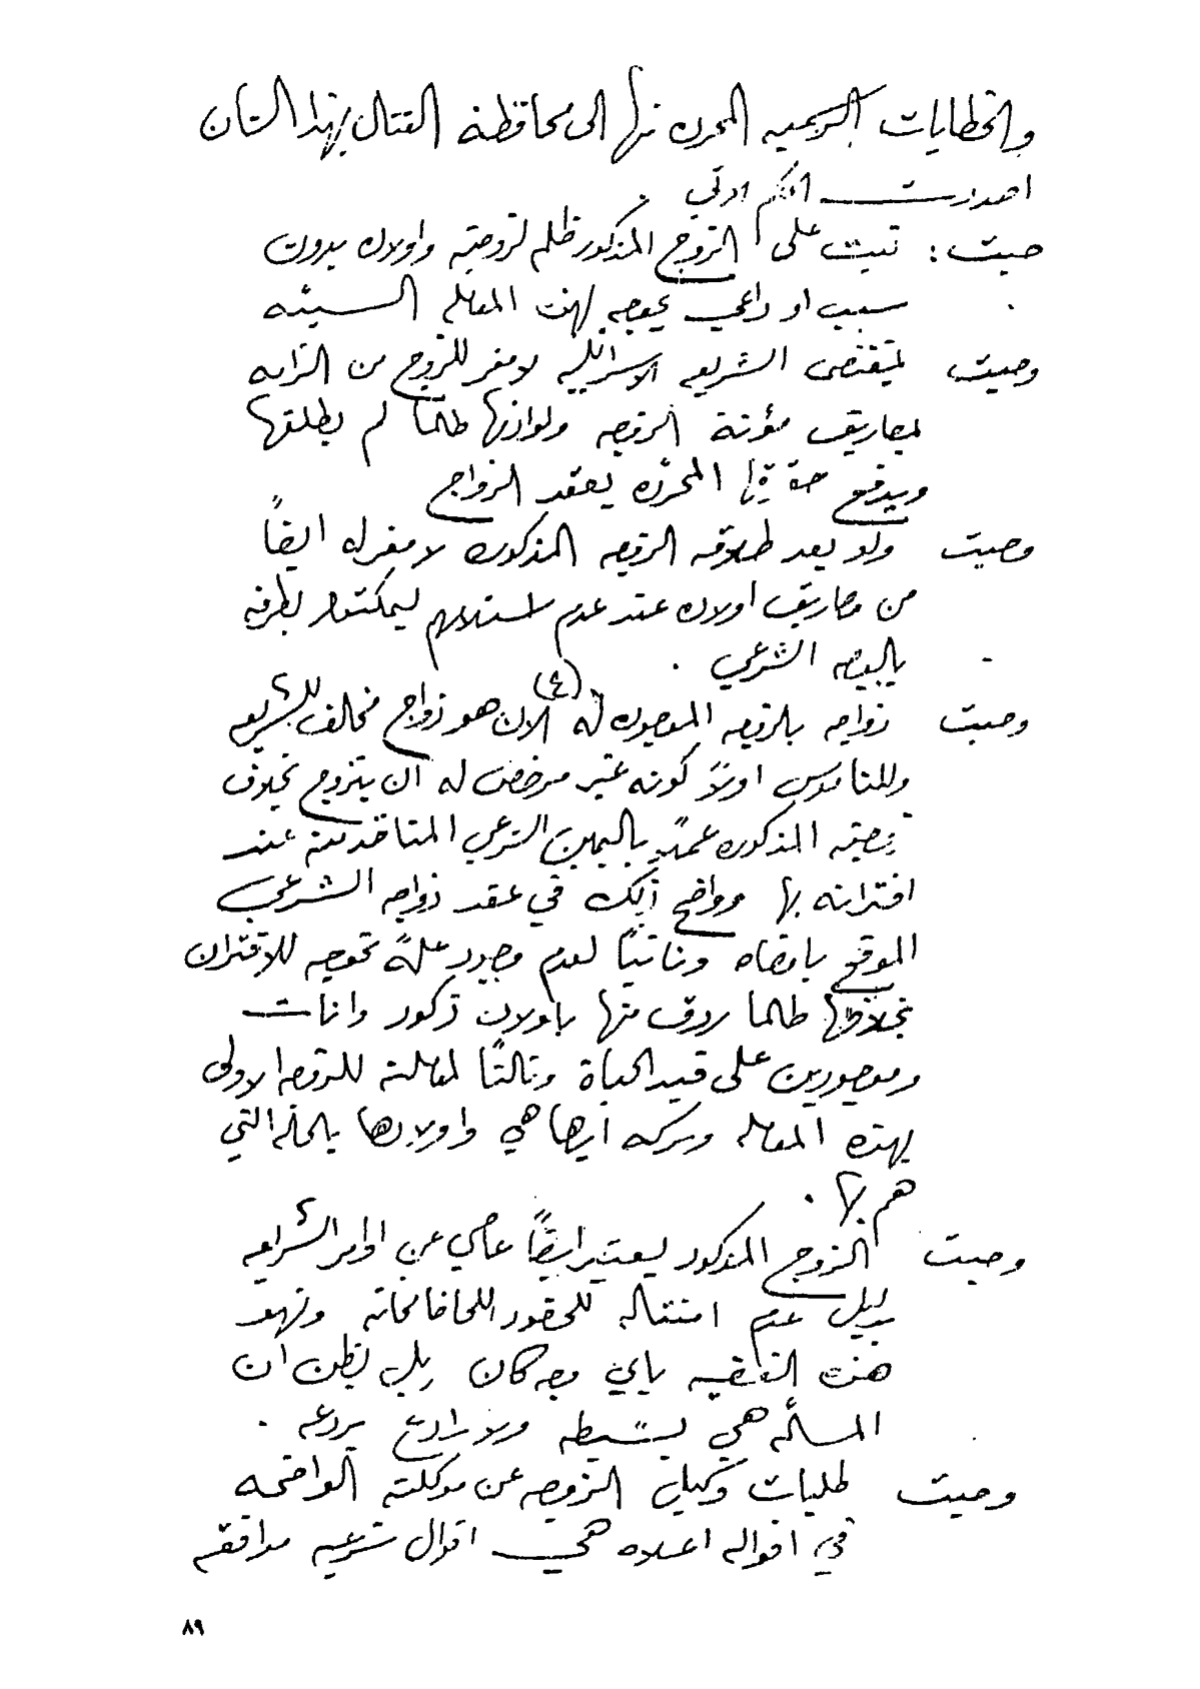 والخطابات الرسميه المحرره منها الى محافظة القتال بهذا الشأن
اصدارت الحكم الاتي
حيث : ثبت على الزوج المذكور ظلم لزوجته واولاده بدون
سبب او داعي يحوجه لهذه المعامله السيئه
وحيث بمقتضى الشريعه الاسرائليه لا مفر للزوج من الزامه
بمصاريف مؤنة الزوجه ولوازمها طالما لم يطلقها
ويدفع حقوقها المحرره بعقد الزواج
وحيث ولو بعد طلاقه الزوجه المذكوره لا مفر له ايضاً
من مصاريف اولاده عند عدم استلامهم ليمكثوا بطرفه
بالوجه الشرعي .
وحيث زواجه بالزوجه الموجوده له (٤) الان هو زواج مخالف للشريعه
وللناموس اولاً كونه غير مرخص له ان يتزوج بخلاف
زوجته المذكوره عملاً باليمين الشرعي المأخوذ منه عند
اقترانه بها وواضح ذلك في عقد زواجه الشرعي
الموقع بامضاه وثانياً لعدم وجود علة تحوجه للاقتران
بخلافها طالما رزق منها باولاد ذكور واناث
وموجودين على قيد الحياة وثالثاً لمعاملته للزوجه الاولى
بهذه المعامله وتركه اياها هي واولادها بالحاله التي
هم بها .
وحيث الزوج المذكور يعتبر ايضاً عاصي عن اوامر الشريعه
بدليل عدم امتثاله للحضور للحاخامخانه ونهو
هذه القضيه باي وجه كان بل يظن ان
المسأله هي بسيطه ولا رادع يردعه .
وحيث طلبات وكيل الزوجه عن موكلته الواضحه
في اقواله اعلاه هي اقوال شرعيه موافقه
٨٩